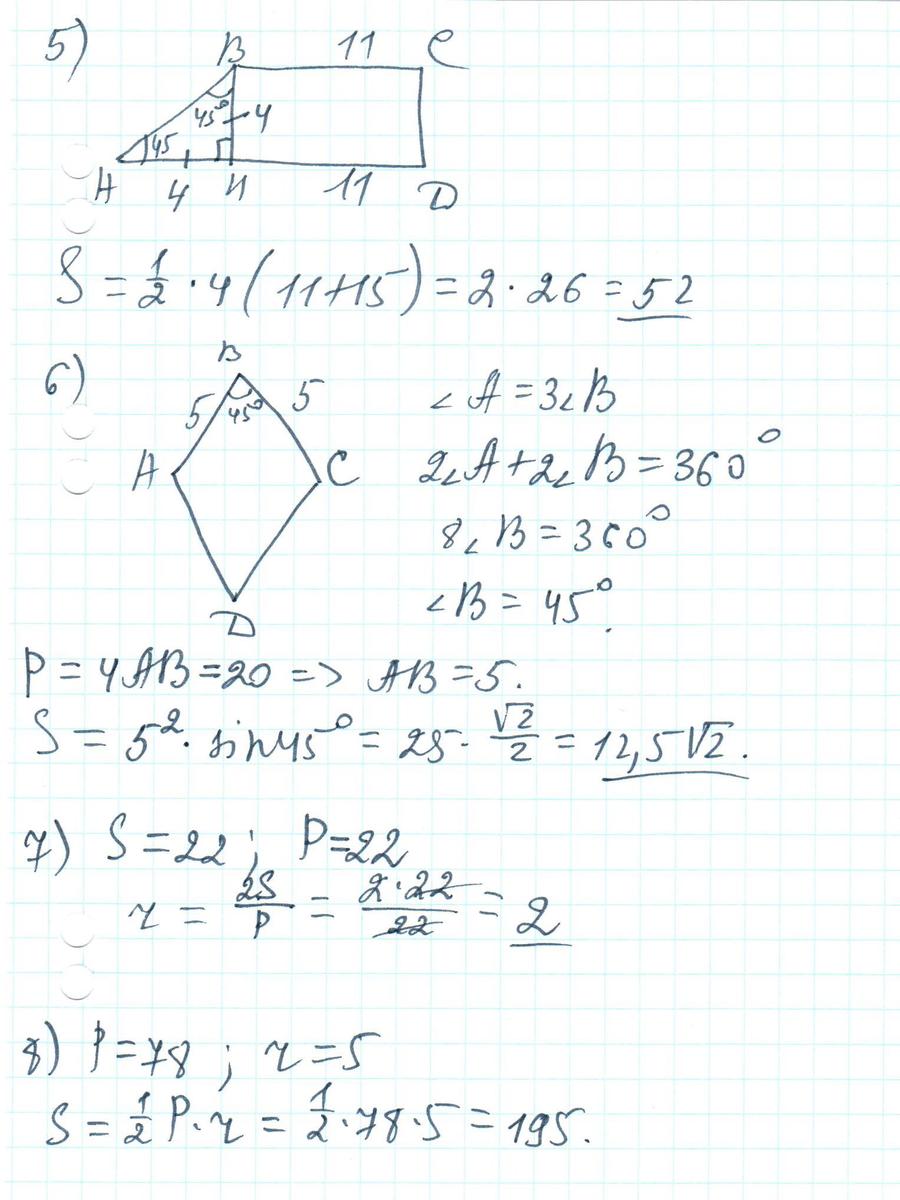 5)
B 11 C
45° 4
45
A 4 H 11 D
S = 1/2 · 4 (11+15) = 2 · 26 = 52
6)
B
5 45° 5
A C
D
∠A = 3∠B
2∠A + 2∠B = 360°
8∠B = 360°
∠B = 45°.
P = 4AB = 20 => AB = 5.
S = 5² · sin45° = 25 · √2/2 = 12,5√2.
7) S = 22 ; P = 22
r = 2S/P = 2·22/22 = 2
8) P = 78 ; r = 5
S = 1/2 P · r = 1/2 · 78 · 5 = 195.